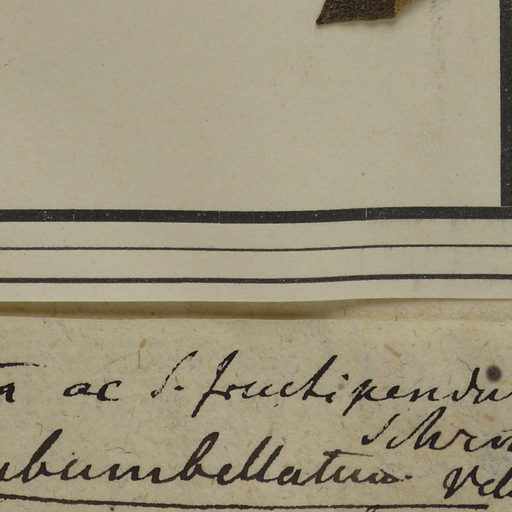 ac S. fructipendu
Schro
ubumbellatum. Vel